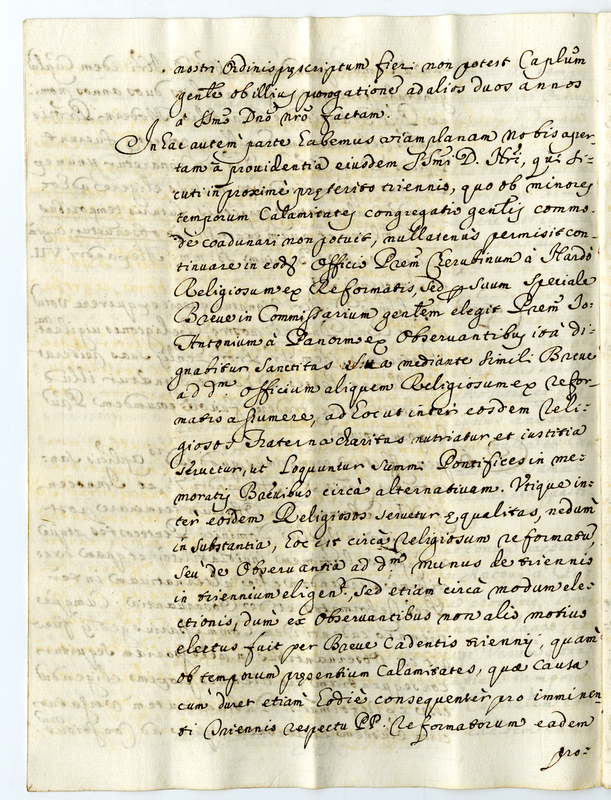 nostri Ordinis pręscriptum fieri non potest Caplum
genle ob illius prorogatione ad alios duos annos
à Ssmo Dno nro factam.
In hac autem parte habemus viam planam nobis aper-
tam à providentia eiusdem Ssmi D. Nri, qui si-
cuti in proximè pręterito triennio, quo ob minores
temporum Calamitates congregatio genlis commo-
dè coadunari non potuit, nullatenus permisit con-
tinuare in eod Officio Prem Cherubinum à Nardò
Religiosum ex Reformatis, sed p suum speciale
Breve in Commissarium genlem elegit Prem Io:
Antonium à Panormo ex Observantibus ità di-
gnabitur Sanctitas sua mediante simili Breve
ad dm officium aliquem Religiosum ex refor-
matis assumere, ad hoc ut inter eosdem Reli-
giosos Fraterna charitas nutriatur, et iustitia
servetur, ut loquuntur summi Pontifices in me-
moratis Brevibus circà alternativam. Utique in-
ter eosdem Religiosos servetur ęqualitas, nedum
in substantia, hoc est circà Religiosum reformatū,
seu de Observantia ad dm munus de triennio
in triennium eligend, sed etiam circà modum ele-
ctionis, dum ex Observantibus non aliò motivo
electus fuit per Breve Cadentis triennij, quam
ob temporum pręsentium Calamitates, quæ causa
cum duret etiam hodiè consequenter pro imminen
ti Triennio respectu PP: Reformatorum eadem
pro: